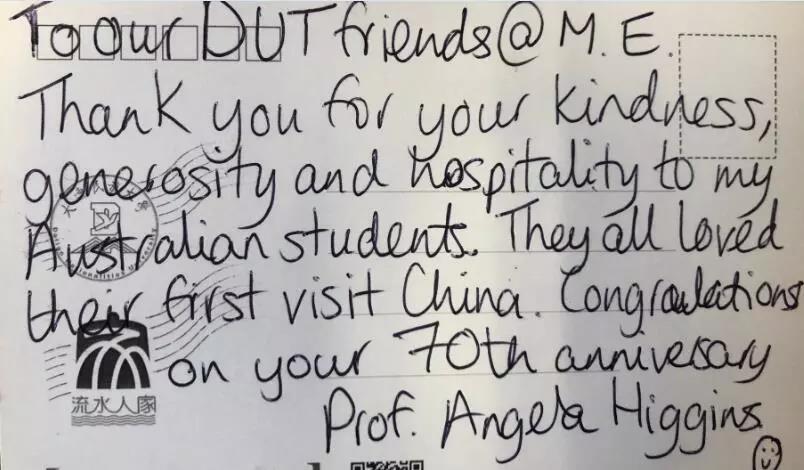 To our DUT friends@M.E.
Thank you for your kindness,
generosity and hospitality to my
Australian students. They all loved
their first visit China. Congraulations
on your 70th anniversary
流水人家
Prof. Angela Higgins